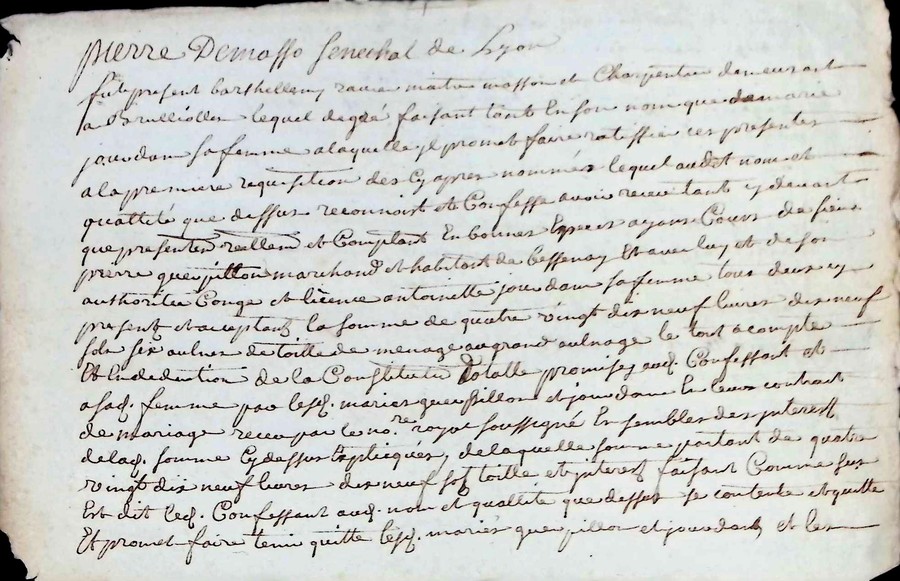 pierre Demasso Senechal de Lyon
fut present barthellemy ravier maitre masson et Charpentier demeurant
a Brulliolles lequel de gré faisant tant En son nom que de marie
jourdam sa femme a laquelle jl promet faire ratiffier ces presentes
a la premiere requisition des Cy apres nommés lequel audit nom et
quallité que dessus reconnoist et Confesse avoir receu tant cy devant
que presentem reellem et Comptant En bonnes Especes ayant Cours de sieur
pierre querpillon marchand et habitant de bessenay Et avec luy et de son
authorité Congé et licence antoinette jourdam sa femme tous deux cy
present et acceptant la somme de quatre vingt dix neuf livres dix neuf
sols six aulnes de toille de menage au grand aulnage le tout a compte
Et En deduction de la Constitution Dotalle promise aud. Confessant et
a sad. femme par lesd. mariés querpillon et jourdam En leur contract
de mariage receu par le nore royal soussigné En sembles des jnterest
de lad. somme Cy dessus Expliquée, de laquelle somme portant de quatre
vingt dix neuf livres dix neuf sols toille et jnterest faisant Comme sus
Est dit led. Confessant aud. nom et quallité que dessus se contente et quitte
Et promet faire tenir quitte lesd. mariés querpillon et jourdam, et les